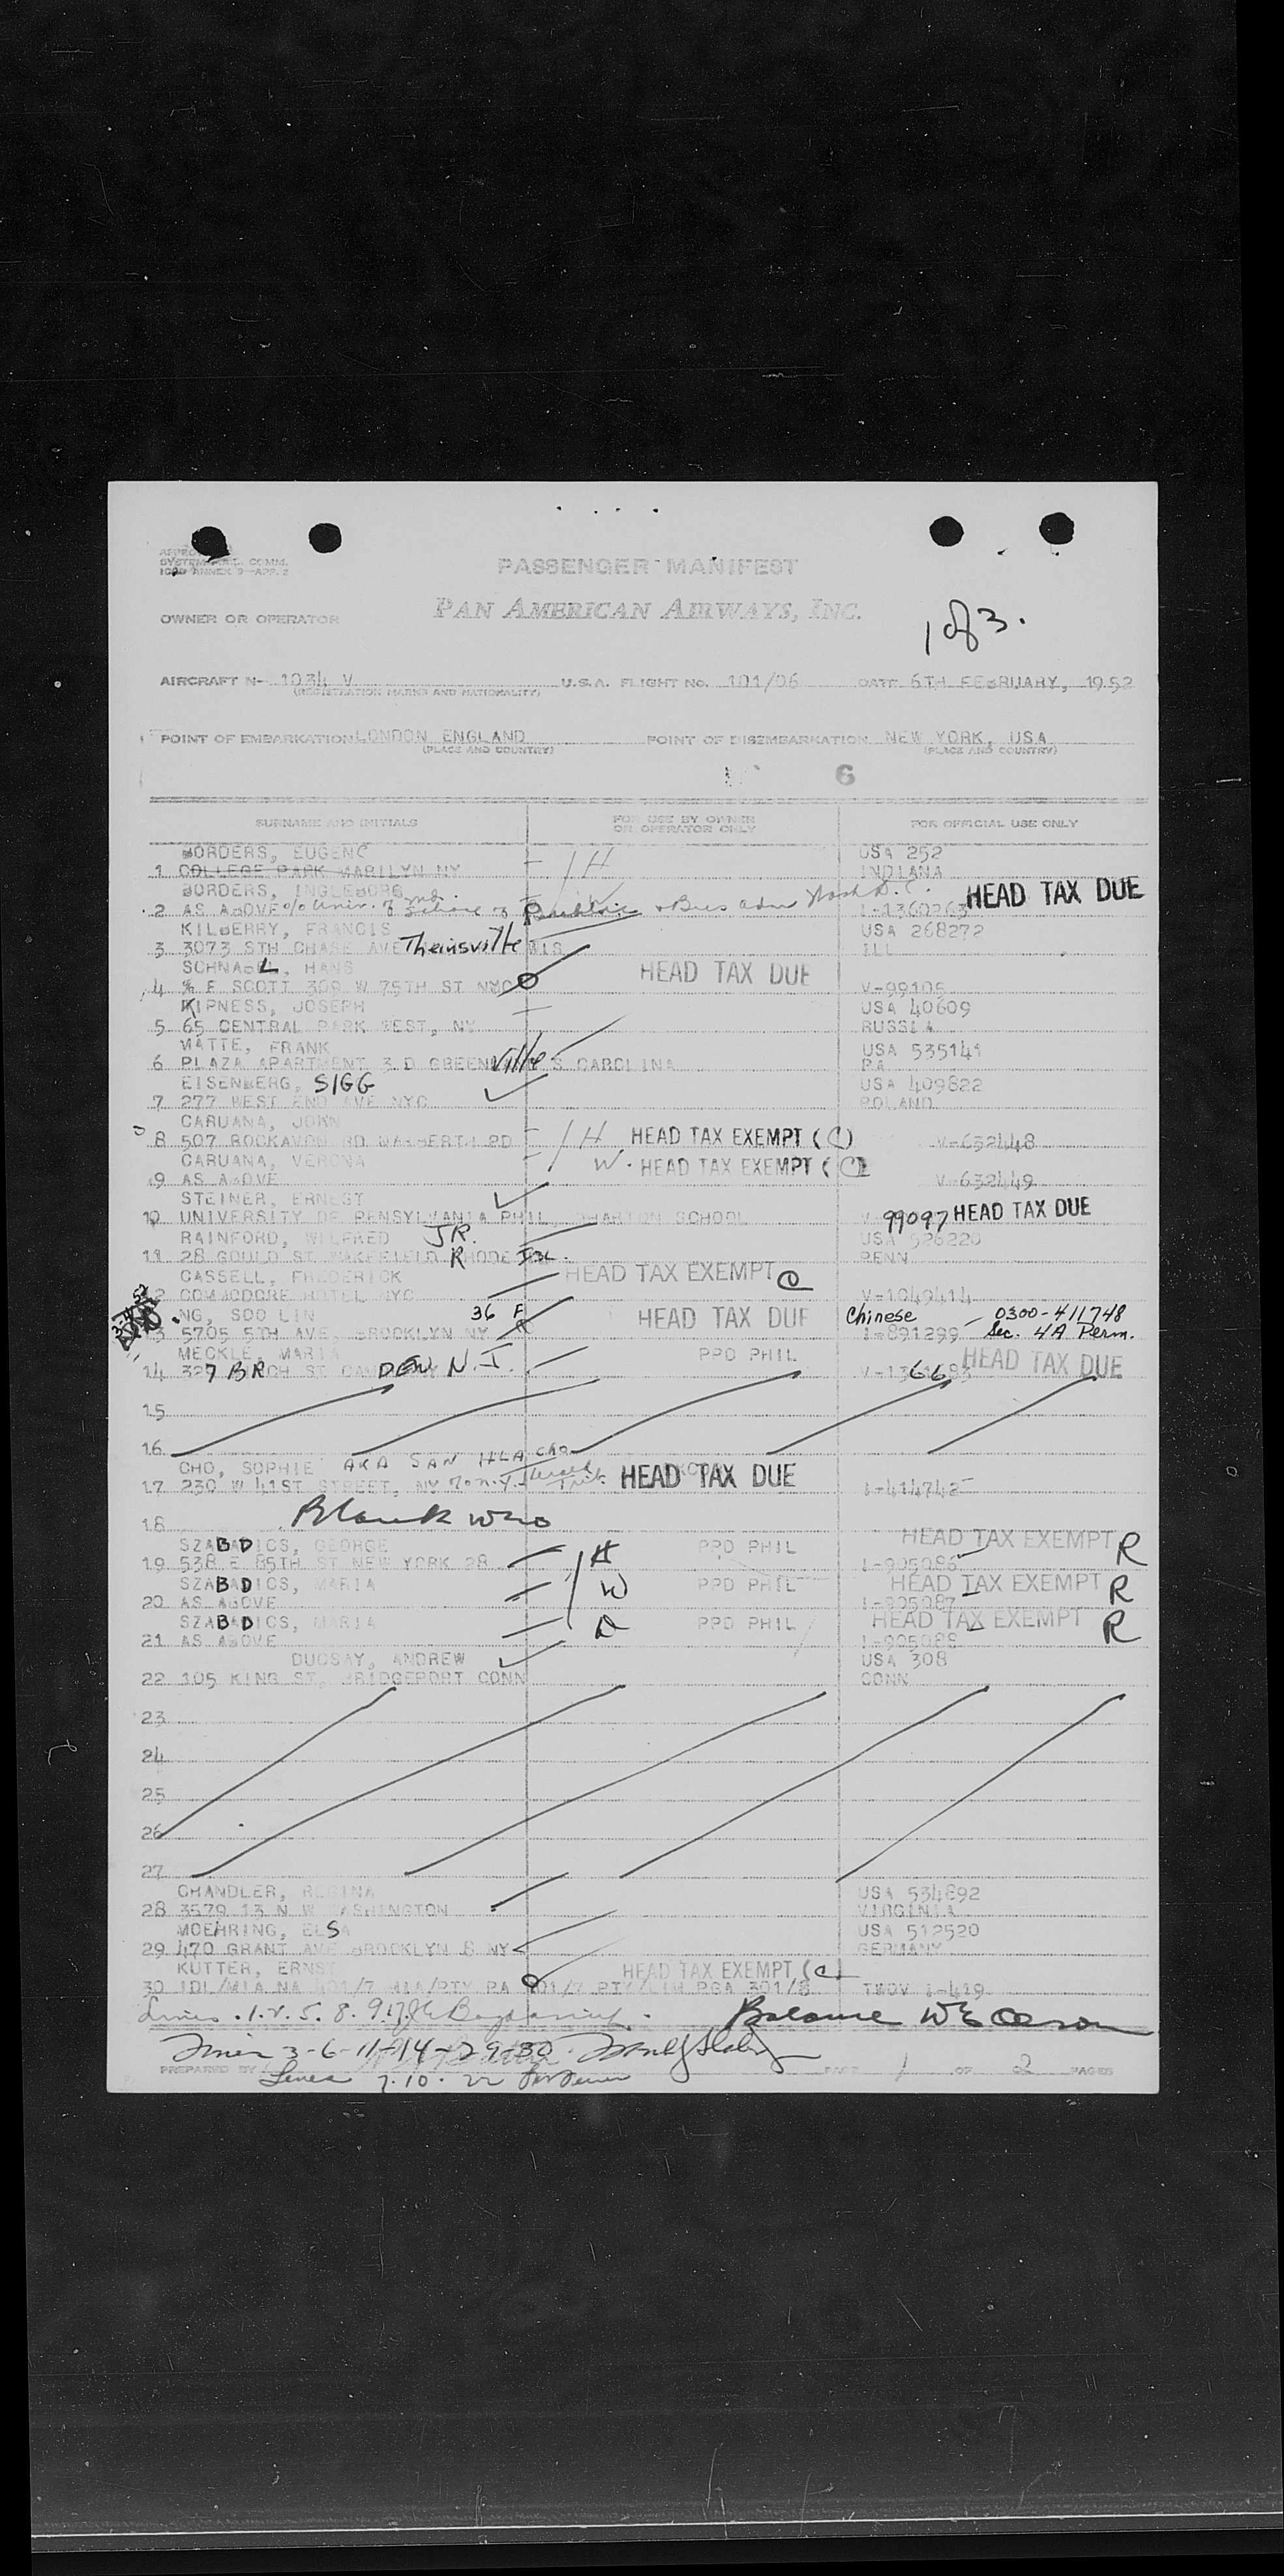 APPROVED
SYSTEM
COMM.
ICAO ANNEX 9—APP. 2
PASSENGER MANIFEST
OWNER OR OPERATOR PAN AMERICAN AIRWAYS, INC.
1 of 3.
AIRCRAFT N- 1034 V U.S.A. FLIGHT No. 101/06 DATE 6TH FEBRUARY, 1952
(REGISTRATION MARKS AND NATIONALITY)
POINT OF EMBARKATION LONDON ENGLAND POINT OF DISEMBARKATION NEW YORK, USA
(PLACE AND COUNTRY) (PLACE AND COUNTRY)
6
SURNAME AND INITIALS FOR USE BY OWNER OR OPERATOR ONLY FOR OFFICIAL USE ONLY
BORDERS, EUGENC USA 252
1 COLLEGE PARK MARILYN NY H INDIANA
BORDERS, INGLEBORG HEAD TAX DUE
2 AS ABOVE c/o Univ. of School of + Bus adm Wash D.C. I-1360263
KILBERRY, FRANCIS USA 268272
3 3073 STH CHASE AVE Theinsville WIS ILL
SCHNABEL, HANS HEAD TAX DUE
4 % E SCOTT 309 W 75TH ST NYC V-99105
KIPNESS, JOSEPH USA 40609
5 65 CENTRAL PARK WEST, NY RUSSIA
MATTE, FRANK USA 535141
6 PLAZA APARTMENT 3 D GREENville S CAROLINA PA
EISENBERG, SIGG USA 409822
7 277 WEST END AVE NYC POLAND
CARUANA, JOHN
8 507 ROCKAVON RD H HEAD TAX EXEMPT (C) V-632448
CARUANA, VERONA W. HEAD TAX EXEMPT (C)
9 AS ABOVE V-632449
STEINER, ERNEST
10 UNIVERSITY OF PENSYLVANIA PHIL, WHARTON SCHOOL 99097 HEAD TAX DUE
RAINFORD, WILFRED JR. USA 526220
11 28 GOULD ST WAKEFIELD RHODE Isl. PENN
CASSELL, FREDERICK HEAD TAX EXEMPT C
12 COMMODORE HOTEL NYC V-1049414
NG, SOO LIN 36 F HEAD TAX DUE Chinese - 0300-411748
13 5705 5TH AVE, BROOKLYN NY I-891299 Sec. 4A Perm.
MECKLE, MARIA PPD PHIL HEAD TAX DUE
14 327 BRCH ST CAMDEN N.J.
15
16
CHO, SOPHIE AKA SAN HLA Cho HEAD TAX DUE
17 230 W 41ST STREET, NY I-414742
18 Blank WEO
SZABADICS, GEORGE H PPD PHIL HEAD TAX EXEMPT R
19 538 E 85TH ST NEW YORK 28 I-905086
SZABADICS, MARIA W PPD PHIL HEAD TAX EXEMPT R
20 AS ABOVE I-905087
SZABADICS, MARIA D PPD PHIL HEAD TAX EXEMPT R
21 AS ABOVE I-905088
DUCSAY, ANDREW USA 308
22 105 KING ST, BRIDGEPORT CONN CONN
23
24
25
26
27
CHANDLER, REGINA USA 534892
28 3579 13 N W WASHINGTON VIRGINIA
MOEHRING, ELSA USA 512520
29 470 GRANT AVE BROOKLYN 8 NY GERMANY
KUTTER, ERNST HEAD TAX EXEMPT (C)
30 IDL/MIA NA 401/7 MIA/PTY PA 301/7 PTY/LIM PGA 301/8 TWOV I-419
Lines 1. 2. 5. 8. 9. Balance WE Olson
Lines 3-6-11-14-29-30
PREPARED BY PAGE 1 OF 2 PAGES
Lines 7. 10. 22